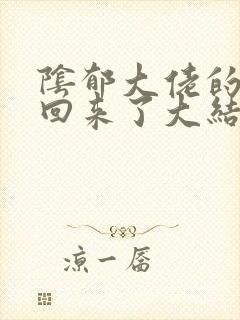 陰郁大佬的
回来了大結
凉一厴